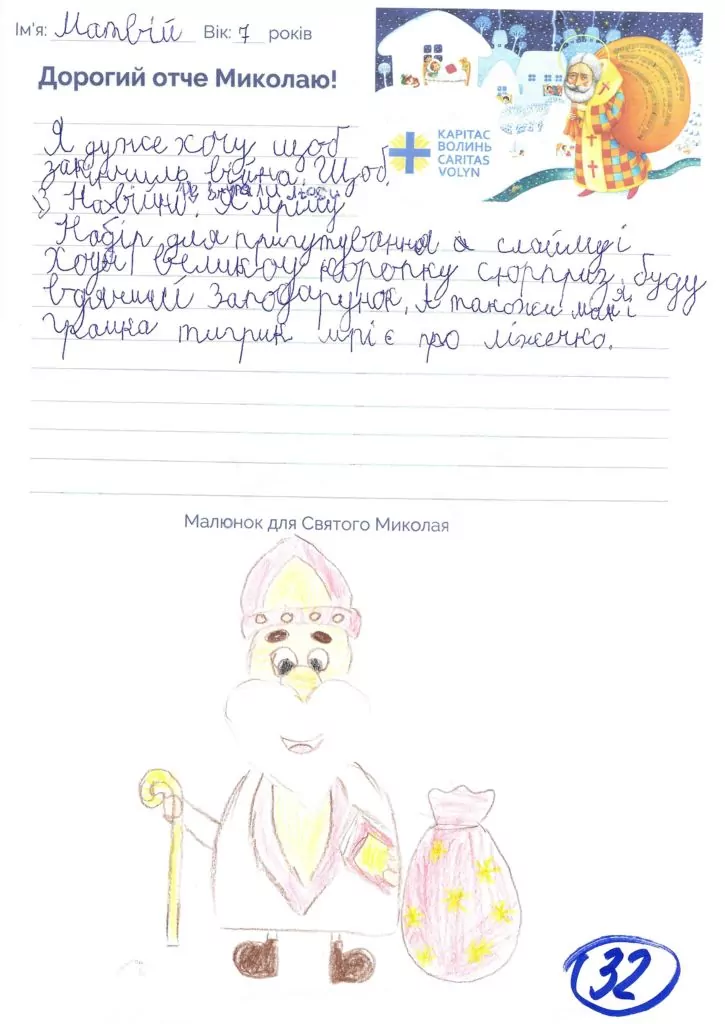 Ім'я: Матвій Вік: 7 років
Дорогий отче Миколаю!
КАРІТАС
ВОЛИНЬ
CARITAS
VOLYN
Я дуже хочу щоб
закінчила війна. Щоб
На війні не вмирали люди
Я мрію
Набір для пригутування слаймуі
Хочу велику коропку сюрприз. буду
вдячний заподарунок. А також моя
тигрик мріє про ліжечко.
Малюнок для Святого Миколая
32